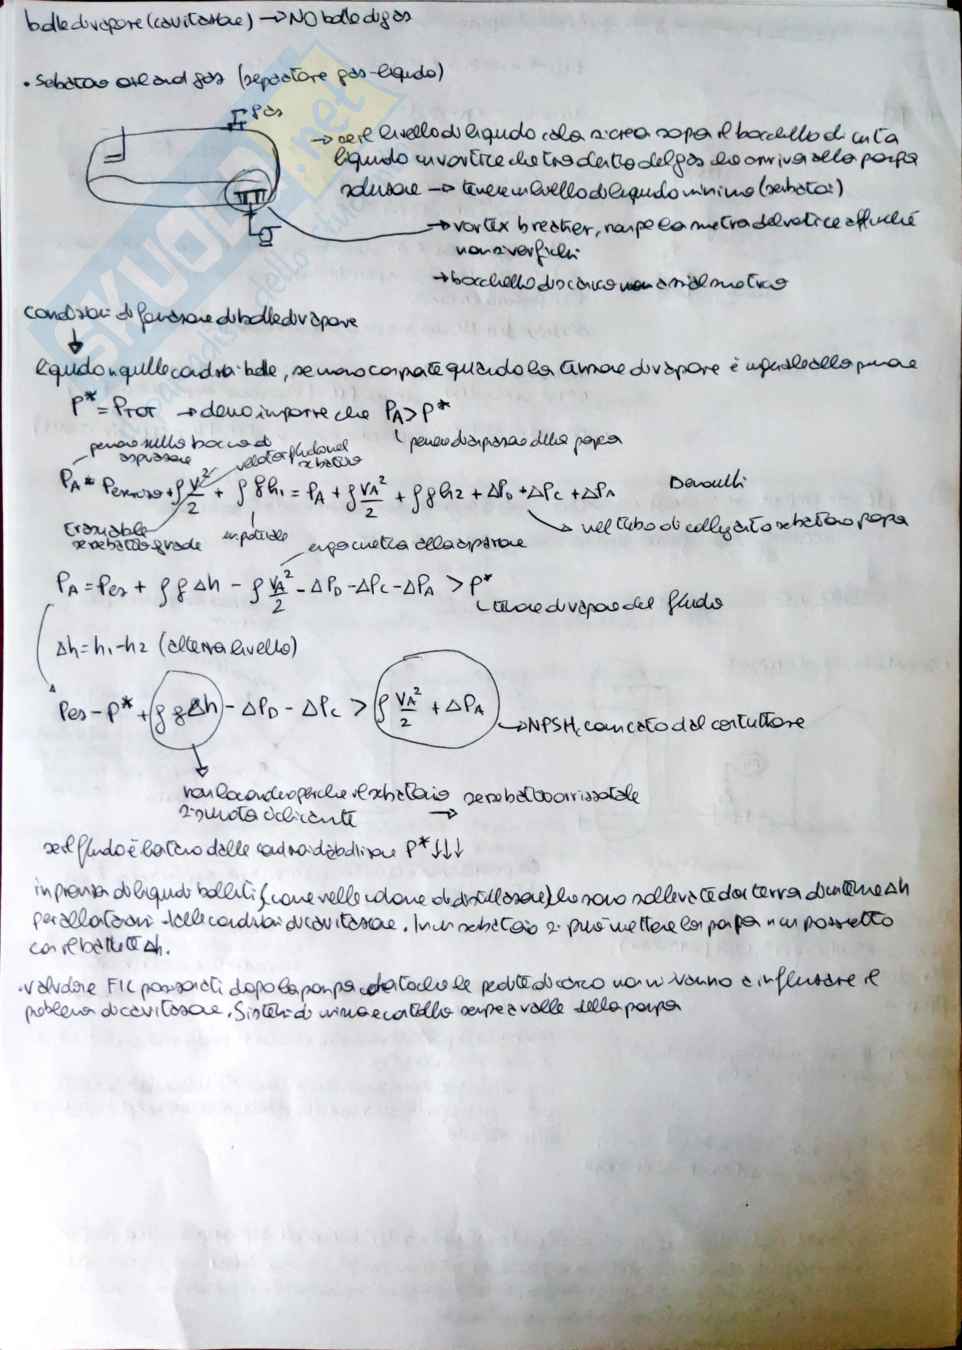 bolle di vapore (cavitazione) → NO bolle di gas
• Serbatoio oil and gas (separatore gas-liquido)
gas
→ se il livello di liquido cala si crea sopra il bocchello di uscita
liquido un vortice che trascina dentro del gas che arriva alla pompa
soluzione → tenere un livello di liquido minimo (serbatoi)
→ vortex breaker, rompe la simmetria del vortice affinché
non si verifichi
→ bocchello di scarico non assialsimmetrico
SKUOLA.net
condizioni di formazione di bolle di vapore
↓
liquido in quelle condizioni bolle, se mono componente quando la tensione di vapore è uguale alla pressione
P* = PTOT → devo imporre che PA > P*
pressione sulla bocca di aspirazione
pressione di aspirazione della pompa
velocità fluido nel serbatoio
PA = Pesercizio + ρ V²/2 + ρ g h1 = PA + ρ VA²/2 + ρ g h2 + ΔPD + ΔPC + ΔPA
Bernoulli
→ nel tubo di collegamento serbatoio pompa
trascurabile se serbatoio grande
en. potenziale
energia cinetica alla aspirazione
PA = Pes + ρ g Δh - ρ VA²/2 - ΔPD - ΔPC - ΔPA > P*
tensione di vapore del fluido
Δh = h1 - h2 (altezza livello)
Pes - P* + ρ g Δh - ΔPD - ΔPC > ρ VA²/2 + ΔPA
→ NPSH, comunicato dal costruttore
non la considero perché il serbatoio si svuota
→
se il fluido è lontano dalle condizioni di ebollizione P* ↓↓↓
in presenza di liquidi bollenti (come nelle colonne di distillazione) che sono sollevate da terra di un termine Δh
per allontanarsi dalle condizioni di cavitazione. In un serbatoio si può mettere la pompa in un pozzetto
con elevato Δh.
• Valvole FIC posizionati dopo la pompa cosicché le perdite di carico non vanno a influenzare il
problema di cavitazione. Sistemi di misura e controllo sempre a valle della pompa